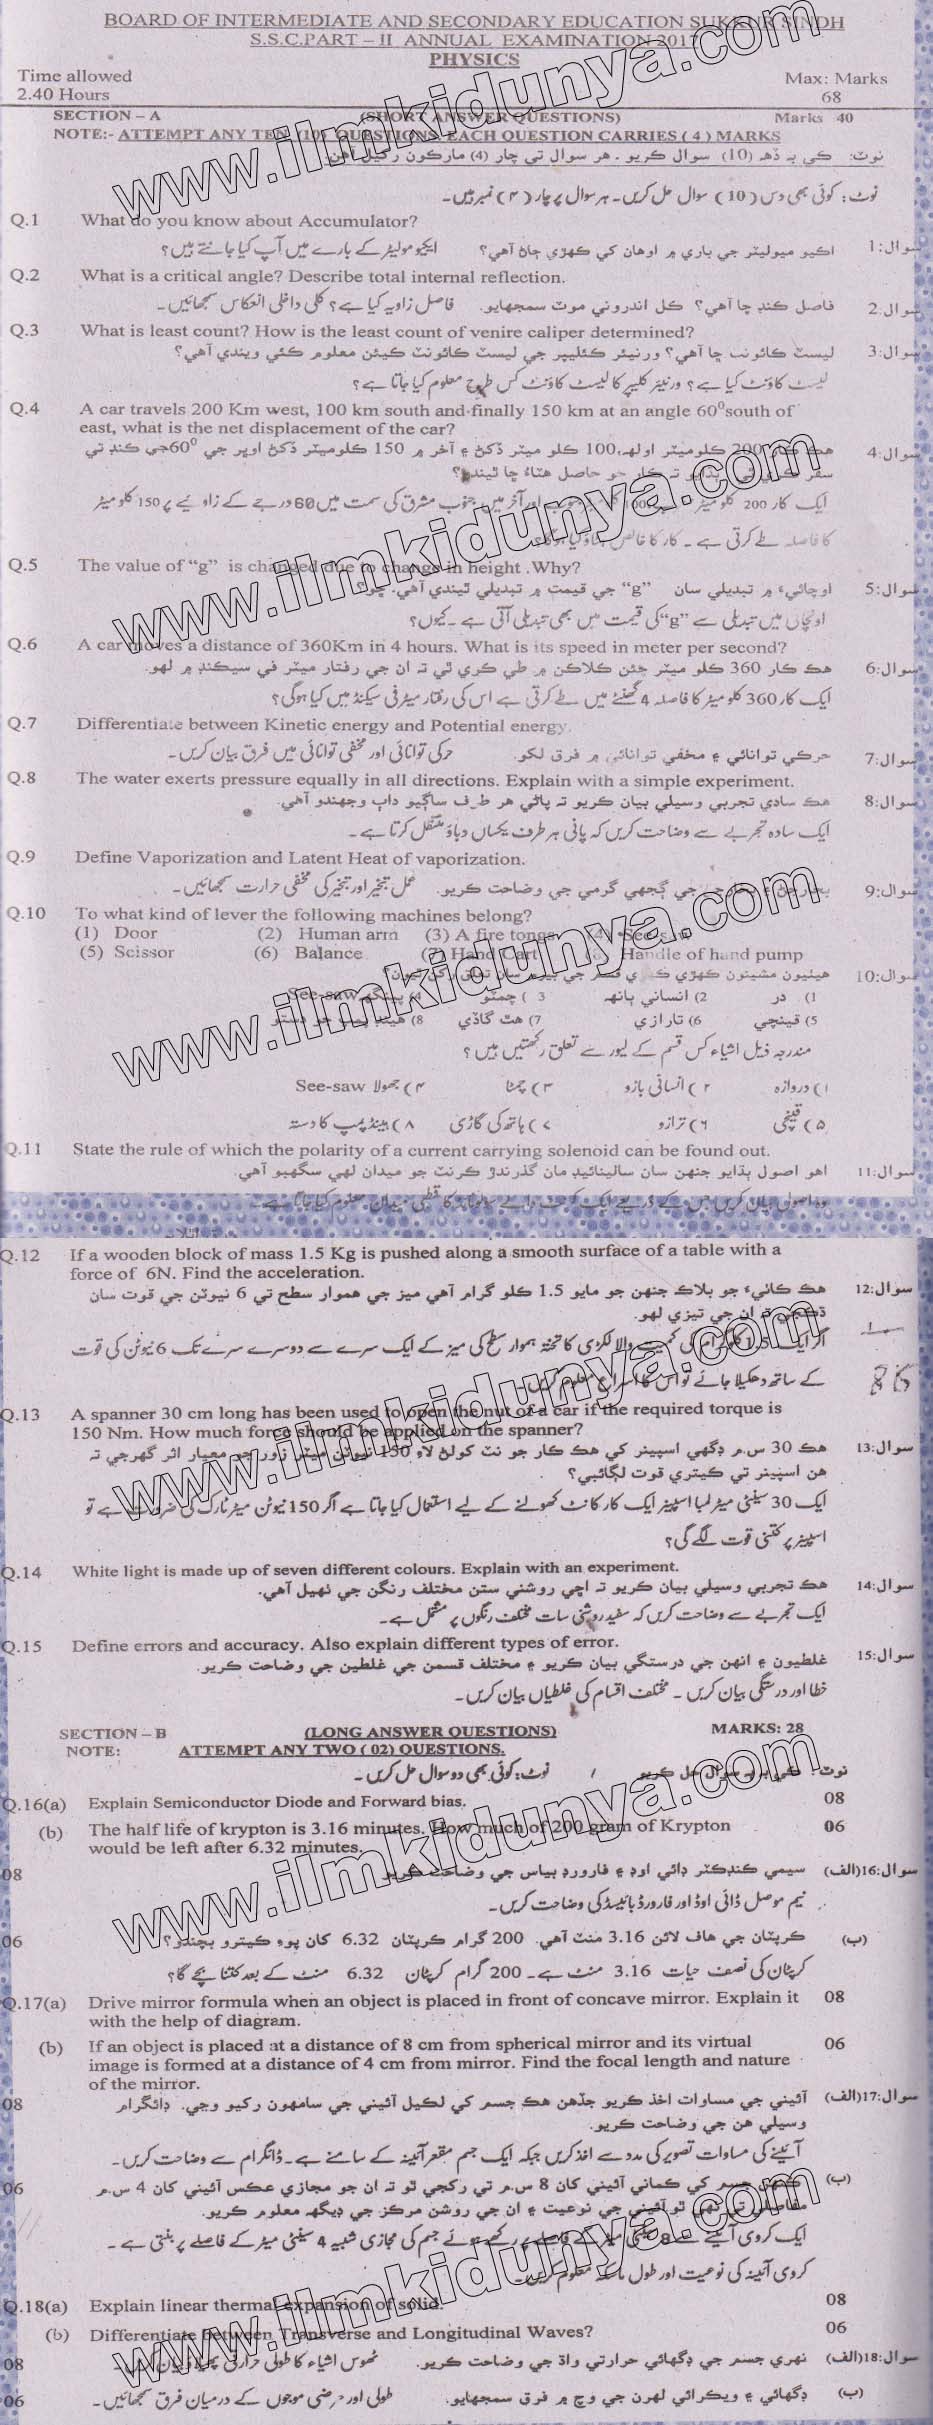 BOARD OF INTERMEDIATE AND SECONDARY EDUCATION SUKKUR SINDH
S.S.C.PART – II ANNUAL EXAMINATION 2017
PHYSICS
Time allowed Max: Marks
2.40 Hours 68
SECTION – A (SHORT ANSWER QUESTIONS) Marks 40
NOTE:- ATTEMPT ANY TEN (10) QUESTIONS, EACH QUESTION CARRIES ( 4 ) MARKS
نوٽ: ڪي به ڏهه (10) سوال ڪريو ۔ هر سوال تي چار (4) مارڪون رکيل آهن۔
نوٹ: کوئی بھی دس (10) سوال حل کریں۔ ہر سوال پر چار (۴) نمبر ہیں۔
Q.1 What do you know about Accumulator?
سوال:1 اڪيو ميوليٽر جي باري ۾ اوهان کي ڪهڙي ڄاڻ آهي؟ ایکیو مولیٹر کے بارے میں آپ کیا جانتے ہیں؟
Q.2 What is a critical angle? Describe total internal reflection.
سوال:2 فاصل ڪنڊ ڇا آهي؟ ڪل اندروني موٽ سمجهايو۔ فاصل زاویہ کیا ہے؟ کلی داخلی انعکاس سمجھائیں۔
Q.3 What is least count? How is the least count of venire caliper determined?
سوال:3 ليسٽ ڪائونٽ ڇا آهي؟ ورنيئر ڪئليپر جي ليسٽ ڪائونٽ ڪيئن معلوم ڪئي ويندي آهي؟
لیسٹ کاؤنٹ کیا ہے؟ ورنیئر کلیپر کا لیسٹ کاؤنٹ کس طرح معلوم کیا جاتا ہے؟
Q.4 A car travels 200 Km west, 100 km south and finally 150 km at an angle 60⁰south of
east, what is the net displacement of the car?
سوال:4 هڪ ڪار 200 ڪلوميٽر اولهه، 100 ڪلو ميٽر ڏکڻ ۽ آخر ۾ 150 ڪلوميٽر ڏکڻ اوڀر جي 60⁰جي ڪنڊ تي
ایک کار 200 کلو میٹر اور آخر میں جنوب مشرق کی سمت میں 60 درجے کے زاویے پر 150 کلو میٹر
کا فاصلہ طے کرتی ہے۔ کار کا خالص
Q.5 The value of "g" is changed due to change in height .Why?
سوال:5 اوچائيءَ ۾ تبديلي سان "g" جي قيمت ۾ تبديلي ٿيندي آهي. ڇو؟
اونچائی میں تبدیلی سے "g" کی قیمت میں بھی تبدیلی آتی ہے۔ کیوں؟
Q.6 A car moves a distance of 360Km in 4 hours. What is its speed in meter per second?
سوال:6 هڪ ڪار 360 ڪلو ميٽر چئن ڪلاڪن ۾ طي ڪري ٿي ته ان جي رفتار ميٽر في سيڪنڊ ۾ لهو۔
ایک کار 360 کلو میٹر کا فاصلہ 4 گھنٹے میں طے کرتی ہے اس کی رفتار میٹر فی سیکنڈ میں کیا ہوگی؟
Q.7 Differentiate between Kinetic energy and Potential energy.
سوال:7 حرڪي توانائي ۽ مخفي توانائي ۾ فرق لکو۔ حرکی توانائی اور مخفی توانائی میں فرق بیان کریں۔
Q.8 The water exerts pressure equally in all directions. Explain with a simple experiment.
سوال:8 هڪ سادي تجربي وسيلي بيان ڪريو ته پاڻي هر طرف ساڳيو داٻ وجهندو آهي۔
ایک سادہ تجربے سے وضاحت کریں کہ پانی ہر طرف یکساں دباؤ منتقل کرتا ہے۔
Q.9 Define Vaporization and Latent Heat of vaporization.
سوال:9 جي ڳجهي گرمي جي وضاحت ڪريو۔ عمل تبخیر اور تبخیر کی مخفی حرارت سمجھائیں۔
Q.10 To what kind of lever the following machines belong?
(1) Door (2) Human arm (3) A fire tongs (4) See-saw
(5) Scissor (6) Balance (7) Hand Cart (8) Handle of hand pump
سوال:10 هيٺيون مشينون ڪهڙي
1) در 2) انساني ٻانهه 3) چمٽو 4) See-saw
5) قينچي 6) تارازي 7) هٿ گاڏي 8)
مندرجہ ذیل اشیاء کس قسم کے لیور سے تعلق رکھتیں ہیں؟
۱) دروازہ ۲) انسانی بازو ۳) چمٹا ۴) جھولا See-saw
۵) قینچی ۶) ترازو ۷) ہاتھ کی گاڑی ۸) ہینڈ پمپ کا دستہ
Q.11 State the rule of which the polarity of a current carrying solenoid can be found out.
سوال:11 اهو اصول ٻڌايو جنهن سان سالينائيڊ مان گذرندڙ ڪرنٽ جو ميدان لهي سگهبو آهي۔
Q.12 If a wooden block of mass 1.5 Kg is pushed along a smooth surface of a table with a
force of 6N. Find the acceleration.
سوال:12 هڪ ڪاٺيءَ جو بلاڪ جنهن جو مايو 1.5 ڪلو گرام آهي ميز جي هموار سطح تي 6 نيوٽن جي قوت سان
ڌڪجي ته ان جي تيزي لهو۔
والا لکڑی کا تختہ ہموار سطح کی میز کے ایک سرے سے دوسرے سرے تک 6 نیوٹن کی قوت
کے ساتھ دھکیلا جائے تو اس کا اسراع معلوم کریں۔
Q.13 A spanner 30 cm long has been used to open the nut of a car if the required torque is
150 Nm. How much force should be applied on the spanner?
سوال:13 هڪ 30 س.م ڊگهي اسپينر کي هڪ ڪار جو نٽ کولڻ لاءِ 150 نيوٽن ميٽر زور جو معيار اثر گهرجي ته
هن اسپينر تي ڪيتري قوت لڳائبي؟
ایک 30 سینٹی میٹر لمبا اسپینر ایک کار کا نٹ کھولنے کے لیے استعمال کیا جاتا ہے اگر 150 نیوٹن میٹر ٹارک کی ضرورت ہے تو
اسپینر پر کتنی قوت لگے گی؟
Q.14 White light is made up of seven different colours. Explain with an experiment.
سوال:14 هڪ تجربي وسيلي بيان ڪريو ته اڇي روشني ستن مختلف رنگن جي ٺهيل آهي۔
ایک تجربے سے وضاحت کریں کہ سفید روشنی سات مختلف رنگوں پر مشتمل ہے۔
Q.15 Define errors and accuracy. Also explain different types of error.
سوال:15 غلطيون ۽ انهن جي درستگي بيان ڪريو ۽ مختلف قسمن جي غلطين جي وضاحت ڪريو۔
خطا اور درستگی بیان کریں۔ مختلف اقسام کی غلطیاں بیان کریں۔
SECTION – B (LONG ANSWER QUESTIONS) MARKS: 28
NOTE: ATTEMPT ANY TWO ( 02) QUESTIONS.
نوٽ: ڪي به ٻه سوال حل ڪريو / نوٹ: کوئی بھی دو سوال حل کریں۔
Q.16(a) Explain Semiconductor Diode and Forward bias. 08
(b) The half life of krypton is 3.16 minutes. How much of 200 gram of Krypton 06
would be left after 6.32 minutes.
سوال:16(الف) سيمي ڪنڊڪٽر ڊائي اوڊ ۽ فارورڊ بياس جي وضاحت ڪريو 08
نیم موصل ڈائی اوڈ اور فارورڈ بائیسڈ کی وضاحت کریں۔
(ب) ڪرپٽان جي هاف لائن 3.16 منٽ آهي. 200 گرام ڪرپٽان 6.32 کان پوءِ ڪيترو بچندو؟ 06
کرپٹان کی نصف حیات 3.16 منٹ ہے۔ 200 گرام کرپٹان 6.32 منٹ کے بعد کتنا بچے گا؟
Q.17(a) Drive mirror formula when an object is placed in front of concave mirror. Explain it 08
with the help of diagram.
(b) If an object is placed at a distance of 8 cm from spherical mirror and its virtual 06
image is formed at a distance of 4 cm from mirror. Find the focal length and nature
of the mirror.
سوال:17(الف) آئيني جي مساوات اخذ ڪريو جڏهن هڪ جسم کي لڪيل آئيني جي سامهون رکيو وڃي. ڊائگرام 08
وسيلي هن جي وضاحت ڪريو۔
آئینے کی مساوات تصویر کی مدد سے اخذ کریں جبکہ ایک جسم مقعر آئینہ کے سامنے ہے۔ ڈائگرام سے وضاحت کریں۔
(ب) جسم کي ڪماني آئيني کان 8 س.م تي رکجي ٿو ته ان جو مجازي عڪس آئيني کان 4 س.م 06
مفاصلي تي ٺهي ٿو آئيني جي نوعيت ۽ ان جي روشن مرڪز جي ڊيگهه معلوم ڪريو۔
ایک کروی آئینے سے 8 سینٹی میٹر کے فاصلے پر رکھے ہوئے جسم کی مجازی شبیہ 4 سینٹی میٹر کے فاصلے پر بنتی ہے۔
کروی آئینہ کی نوعیت اور طول ماسکہ معلوم کریں۔
Q.18(a) Explain linear thermal expansion of solid. 08
(b) Differentiate between Transverse and Longitudinal Waves? 06
سوال:18(الف) نهري جسم جي ڊگهائي حرارتي واڌ جي وضاحت ڪريو۔ ٹھوس اشیاء کا طولی حرارتی 08
(ب) ڊگهائي ۽ ويڪرائي لهرن جي وچ ۾ فرق سمجهايو۔ طولی اور عرضی موجوں کے درمیان فرق سمجھائیں۔ 06
www.ilmkidunya.com
www.ilmkidunya.com
www.ilmkidunya.com
www.ilmkidunya.com
www.ilmkidunya.com
www.ilmkidunya.com